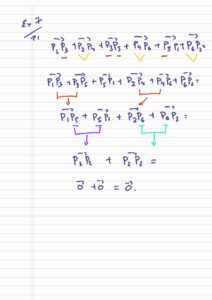 Ex 7
P⃗₁P₃ + P⃗₂P₄ + P⃗₃P₅ + P⃗₄P₆ + P⃗₅P₁ + P⃗₆P₂
P⃗₁P₃ + P⃗₃P₅ + P⃗₅P₁ + P⃗₂P₄ + P⃗₄P₆ + P⃗₆P₂ =
P⃗₁P₅ + P⃗₅P₁ + P⃗₂P₆ + P⃗₆P₂ =
P⃗₁P₁ + P⃗₂P₂ =
0⃗ + 0⃗ = 0⃗.